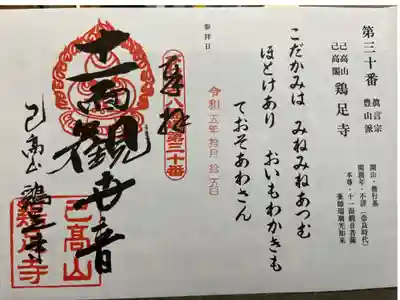 第三十番
己高山
己高閣
鶏足寺
眞言宗
豊山派
開創年・不詳(奈良時代)
本尊・十一面観音菩薩
薬師瑠璃光如来
こだかみは みねみねあつむ
ほとけあり おいもわかきも
ておそあわさん
参拝日
令和五年拾月拾五日
奉拝
十一面観世音
己高山 鶏足寺
己高山
鶏足寺